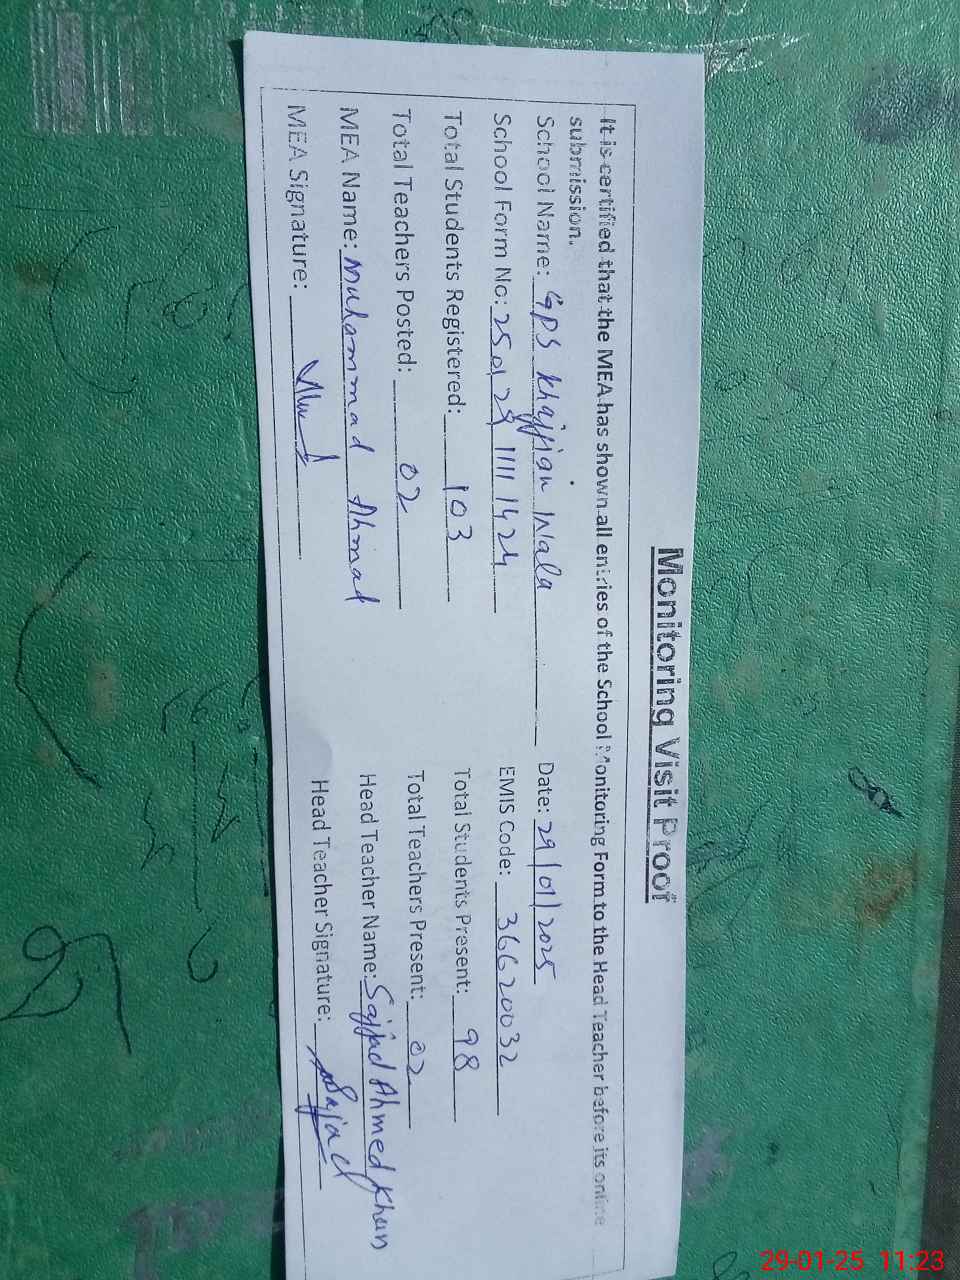 Monitoring Visit Proof
It is certified that the MEA has shown all entries of the School Monitoring Form to the Head Teacher before its online
submission.
School Name: GPS Khajjian Wala Date: 29/01/2025
School Form No: 25012911111424 EMIS Code: 36620032
Total Students Registered: 103 Total Students Present: 98
Total Teachers Posted: 02 Total Teachers Present: 02
MEA Name: Muhammad Ahmad Head Teacher Name: Sajjad Ahmed Khan
MEA Signature: Head Teacher Signature: Sajad
29-01-25 11:23